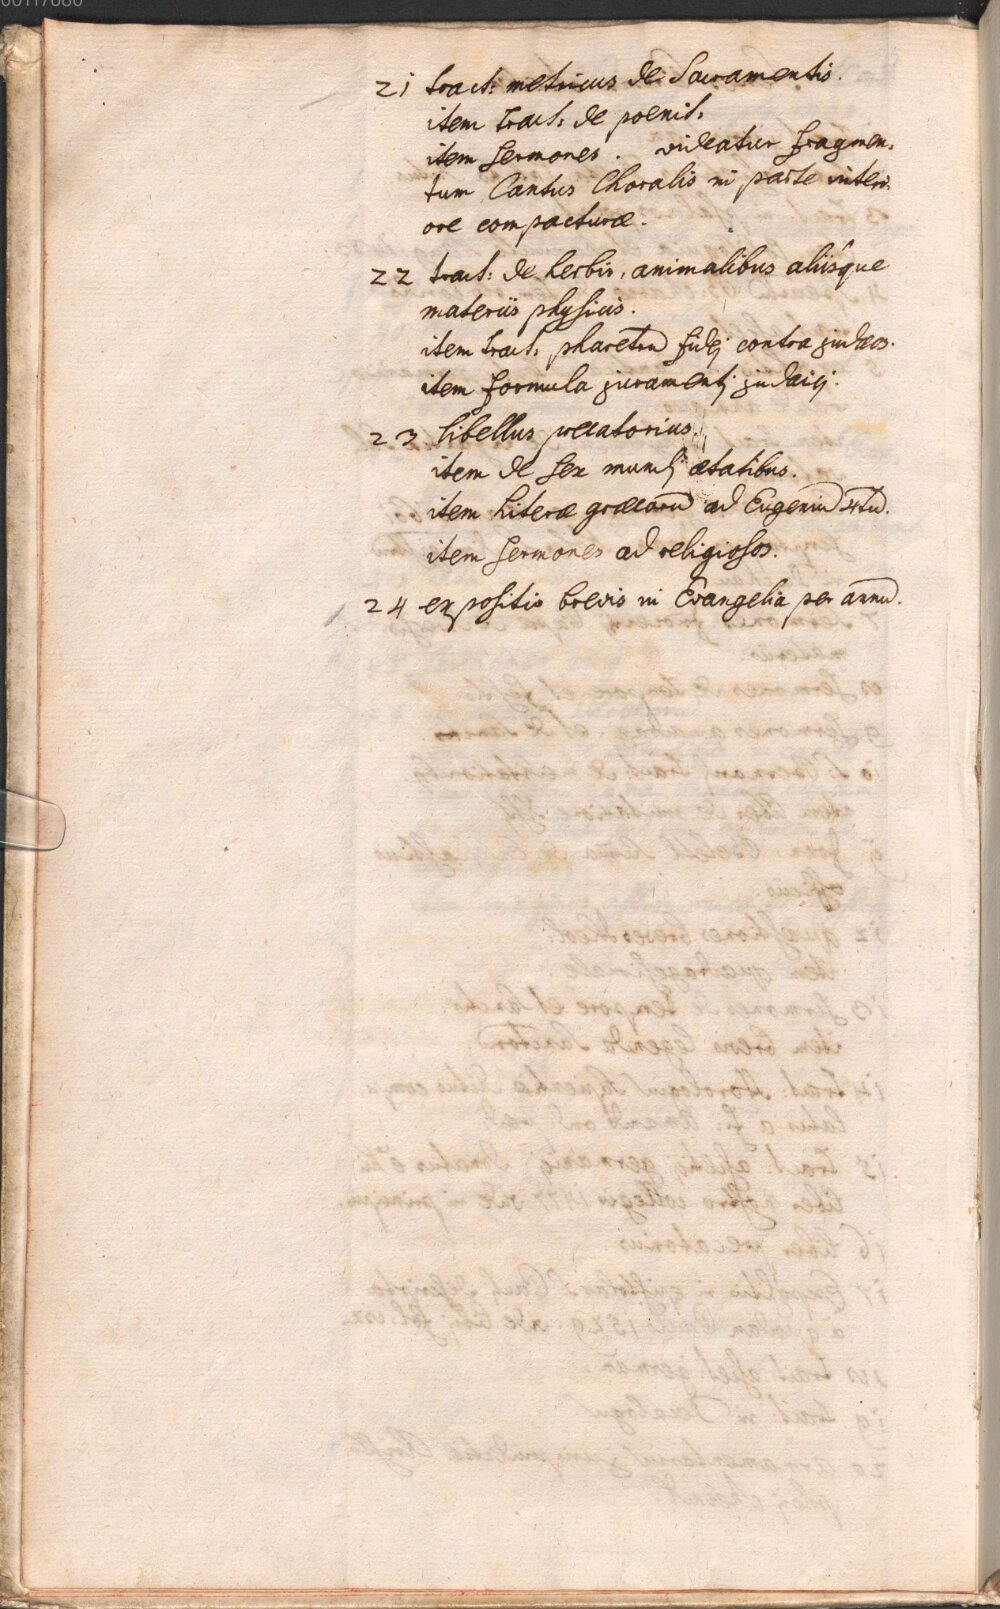 21 tract: metricus de Sacramentis.
item tract: de poenit:
item sermones. videatur fragmen-
tum Cantus Choralis in parte interi-
ore compacturæ.
22 tract: de herbis, animalibus aliisque
materiis physicis.
item tract: pharetra fidej contra judæos.
item formula juramentj judaicj.
23 libellus precatorius.
item de sex mundj ætatibus.
item Literæ græcorū ad Eugeniū 4tū.
item sermones ad religiosos.
24 expositio brevis in Evangelia per annū.